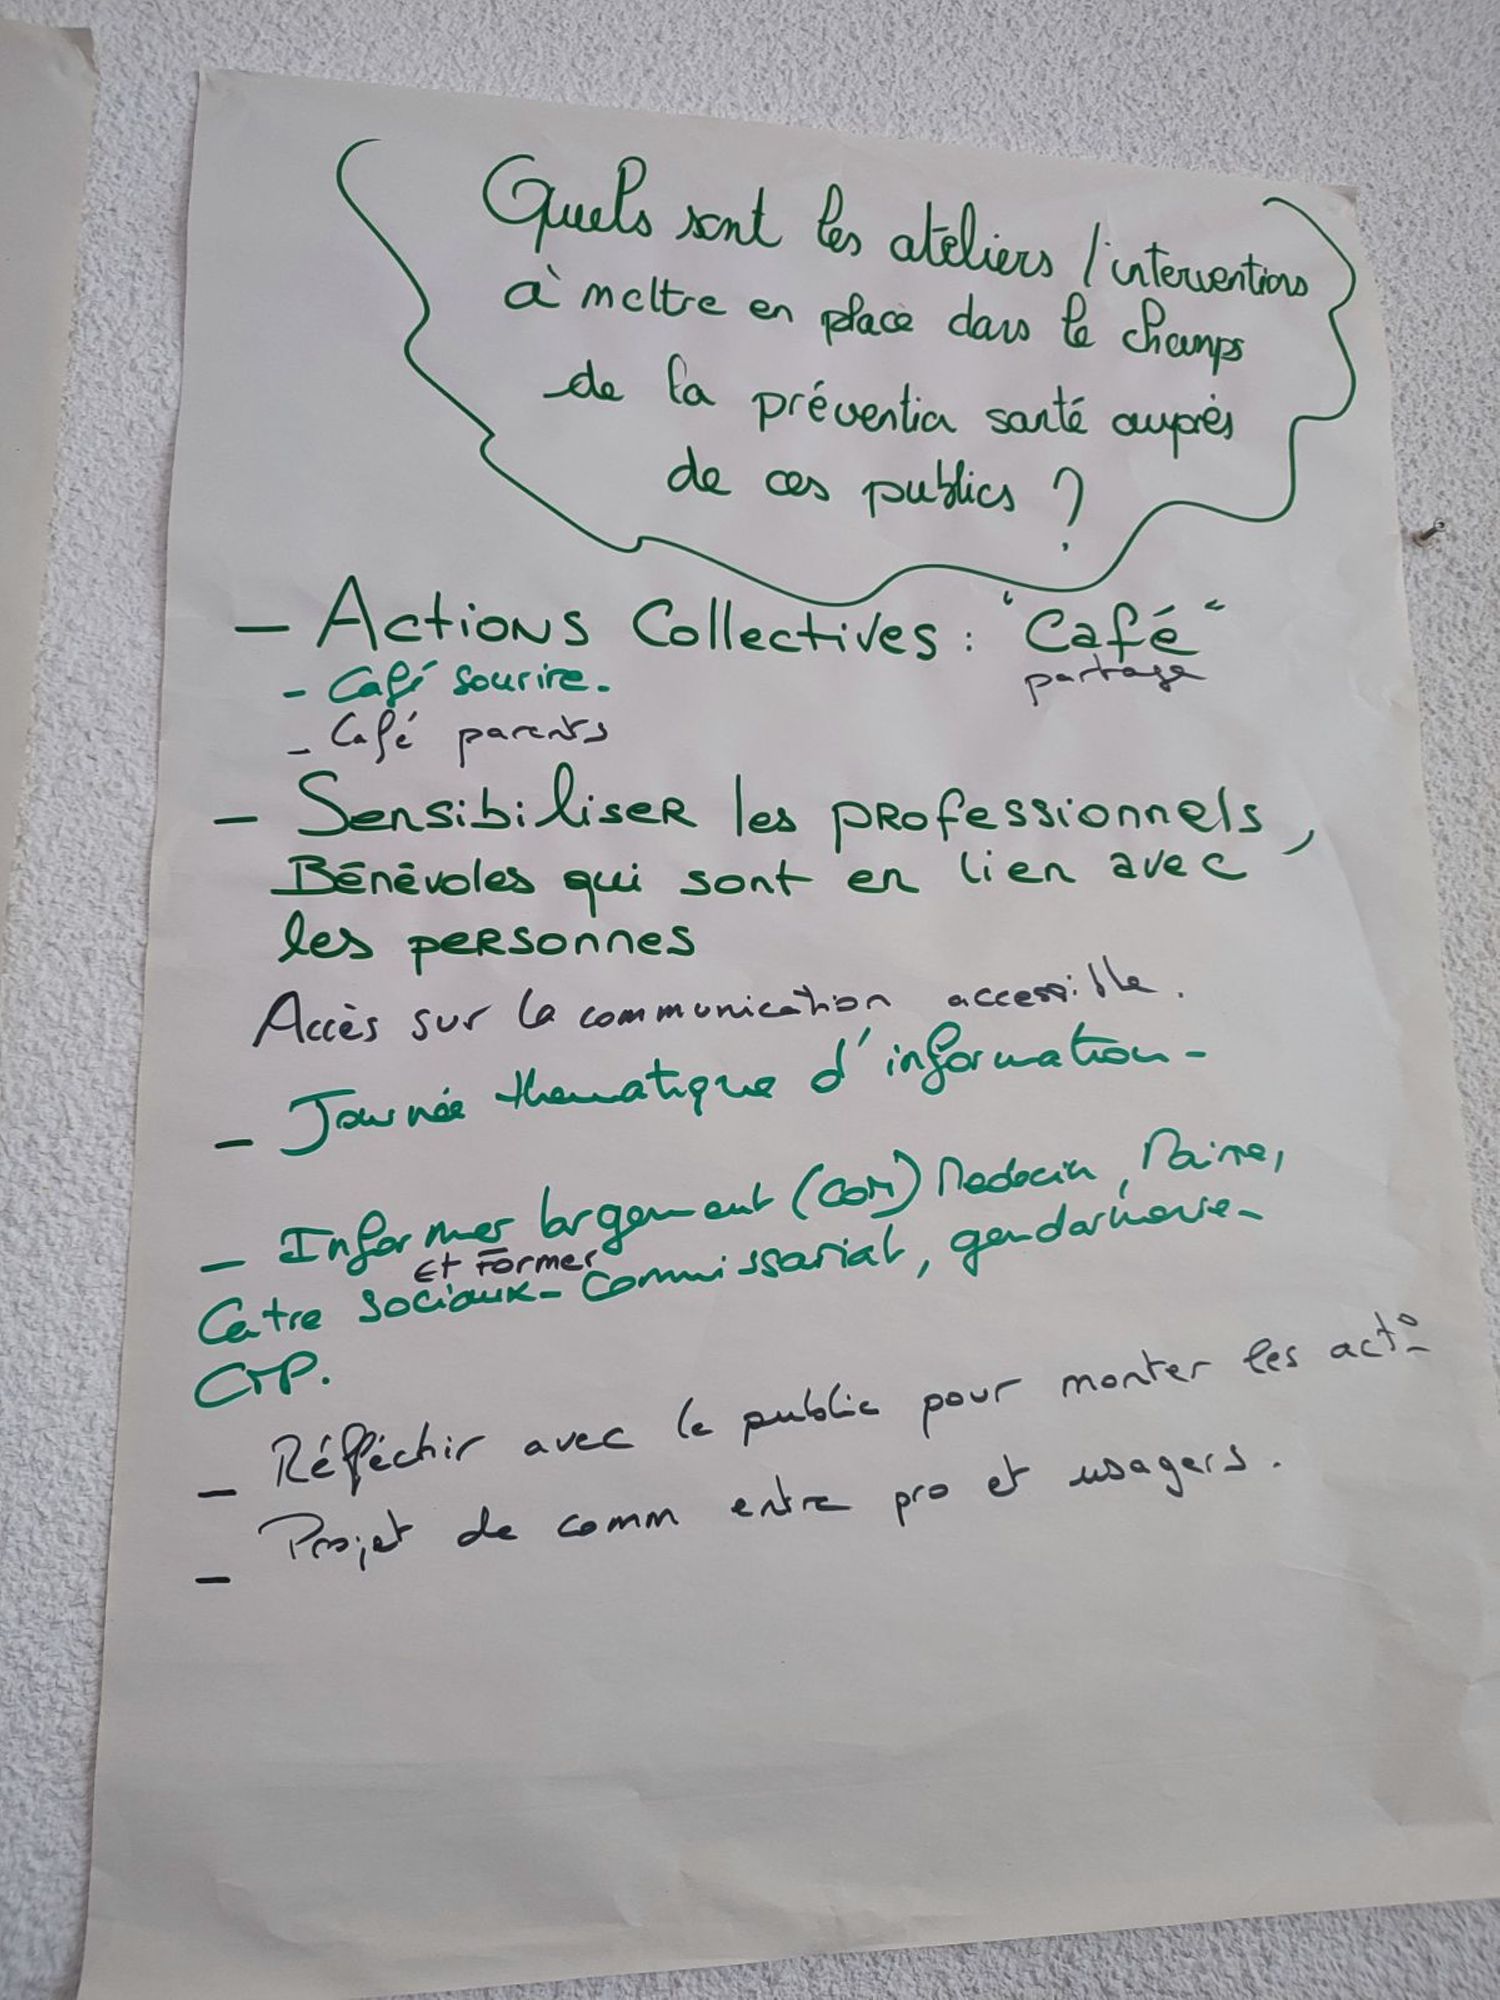 Quels sont les ateliers / interventions
à mettre en place dans le champs
de la prévention santé auprès
de ces publics ?
- Actions Collectives : "Café"
partage
- Café sourire.
- Café parents
- Sensibiliser les professionnels,
Bénévoles qui sont en lien avec
les personnes
Accès sur la communication accessible.
- Journée thematique d'information -
- Informer largement (com) Medecin, Mairie,
Et Former
Centre sociaux - Commissariat, gendarmerie -
CMP.
- Réfléchir avec le public pour monter les act°
- Projet de comm entre pro et usagers.